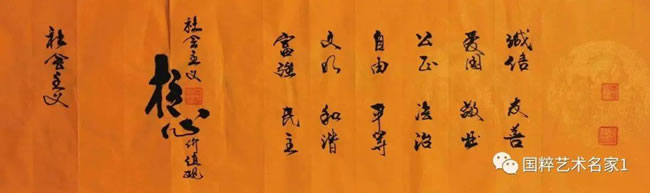 社会主义
社会主义
核心价值观
富强 民主
文明 和谐
自由 平等
公正 法治
爱国 敬业
诚信 友善
国粹艺术名家1